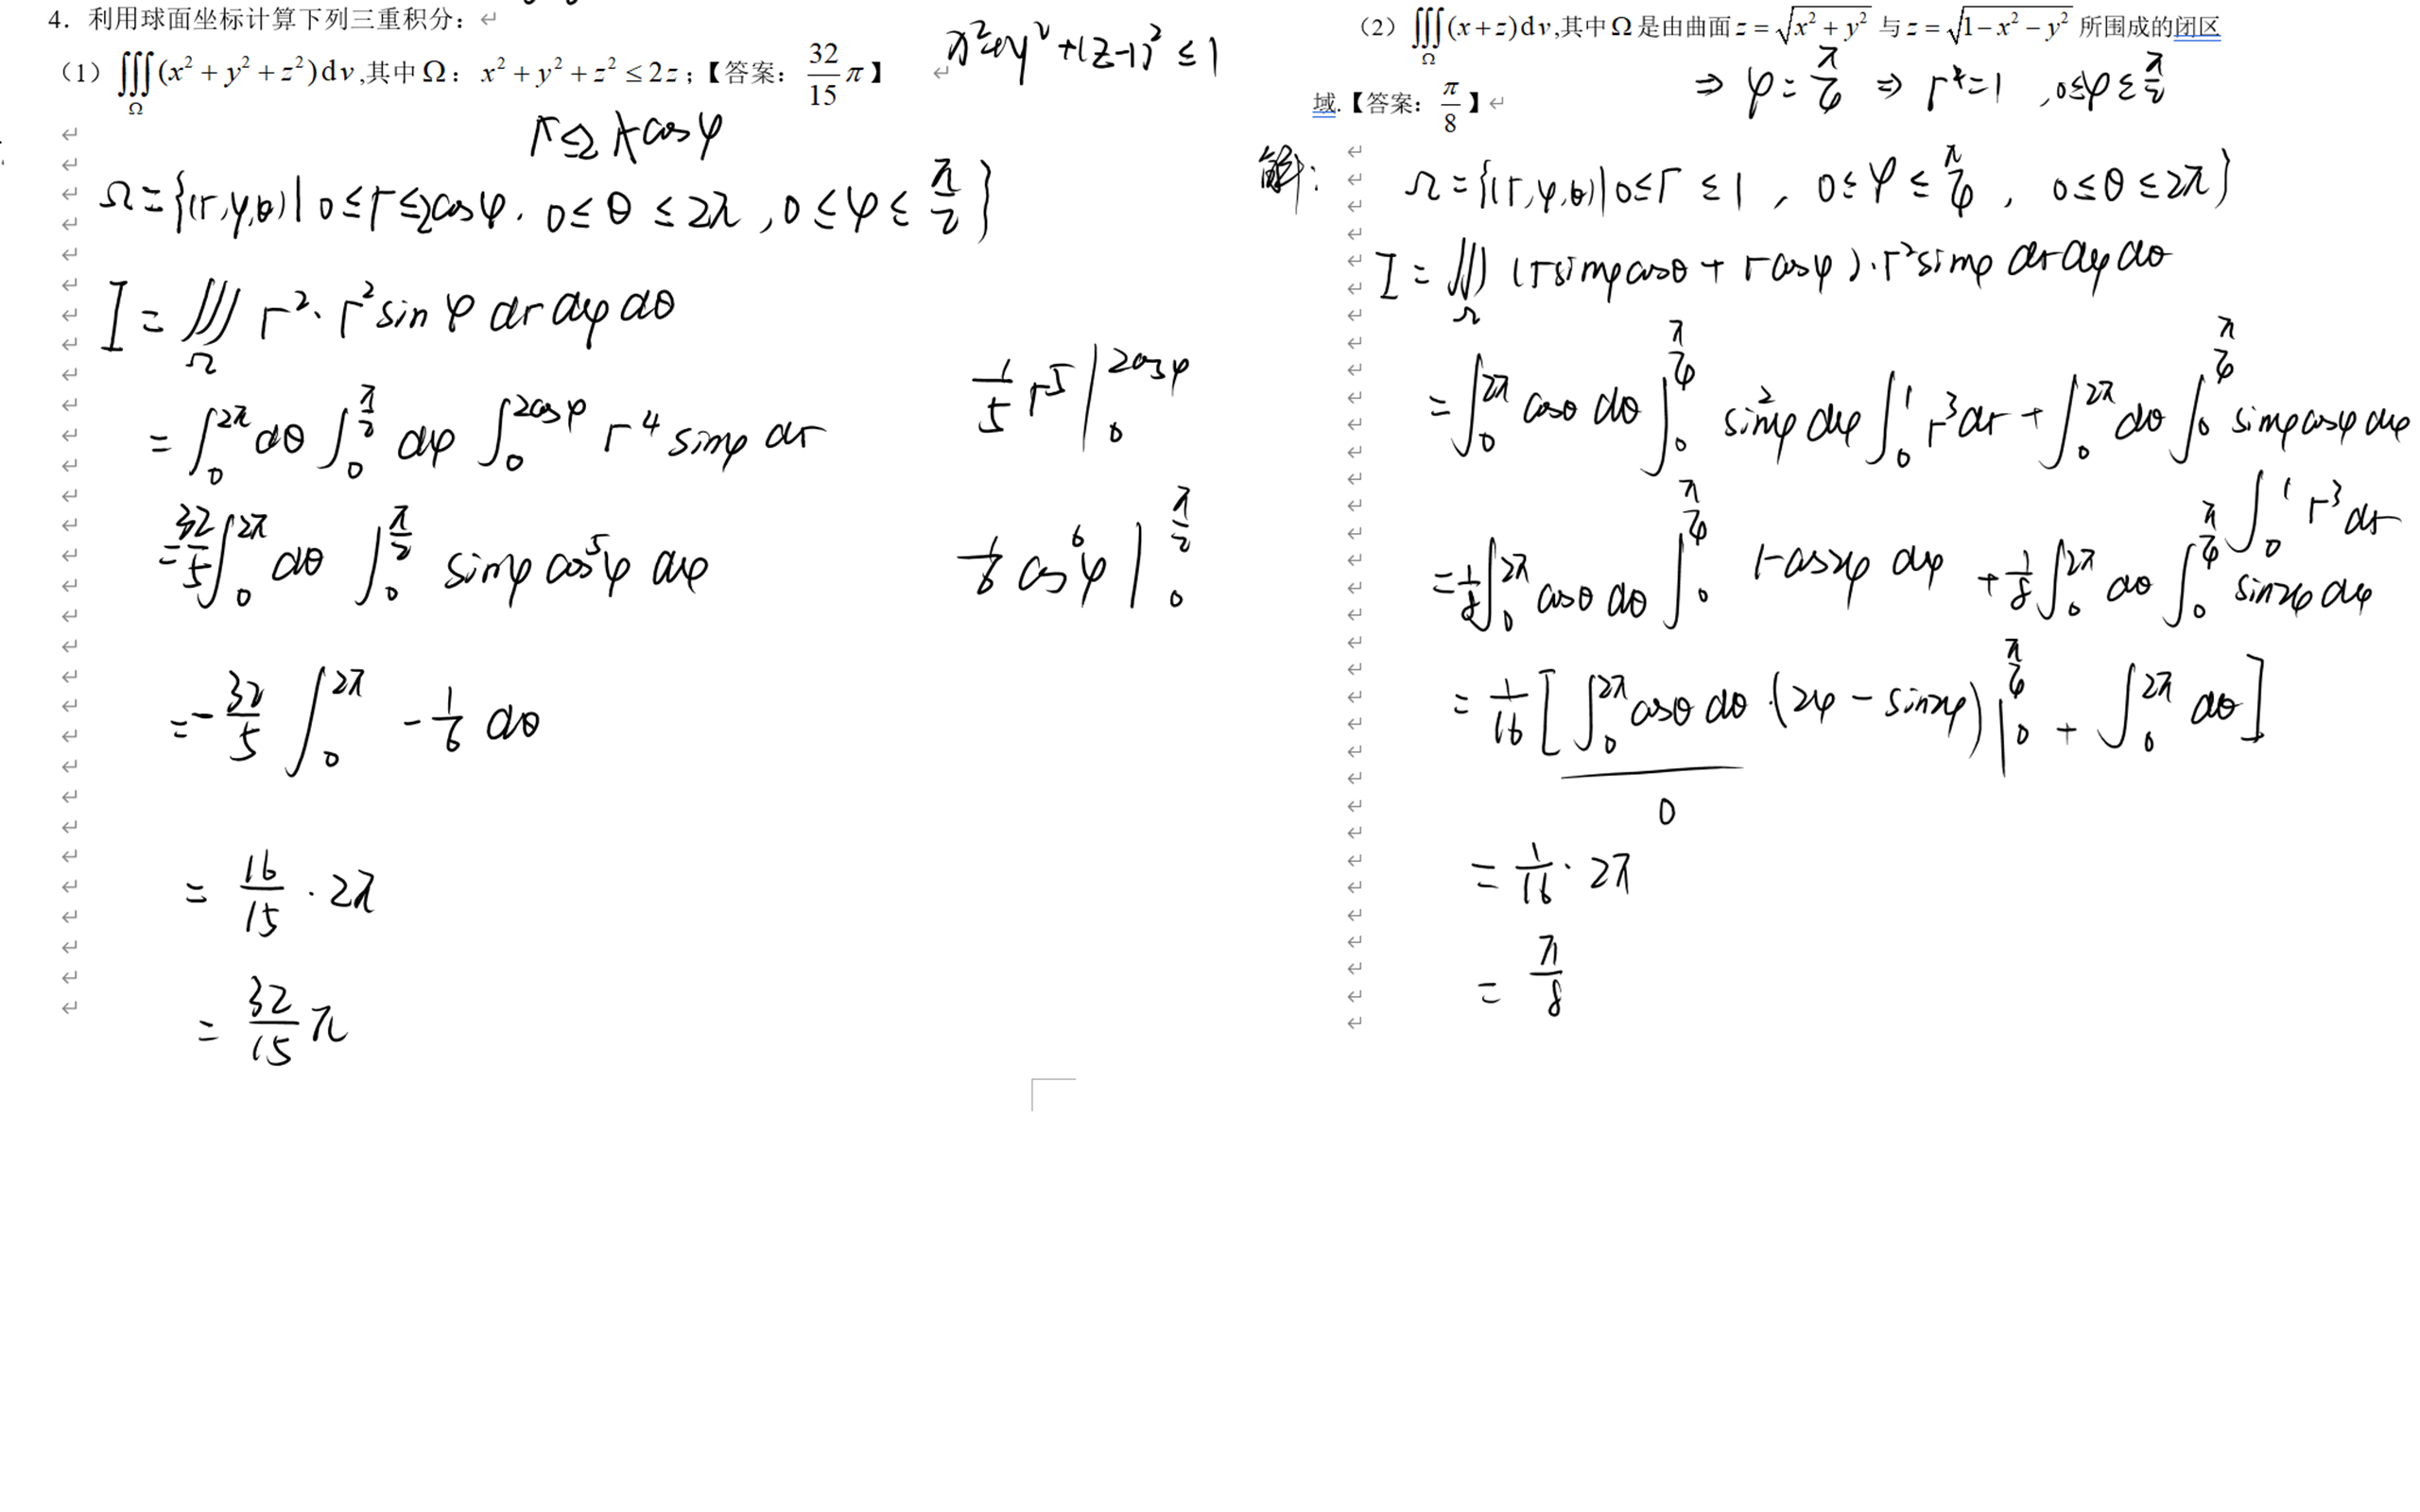 4．利用球面坐标计算下列三重积分：
（1）∭_Ω (x²+y²+z²)dv,其中Ω：x²+y²+z²≤2z；【答案：32/15 π】
x²+y²+(z-1)²≤1
r≤2 cosφ
Ω={(r,φ,θ)|0≤r≤2cosφ, 0≤θ≤2π, 0≤φ≤π/2}
I=∭_Ω r²·r²sinφ dr dφ dθ
=∫₀^{2π} dθ ∫₀^{π/2} dφ ∫₀^{2cosφ} r⁴ sinφ dr
1/5 r⁵|₀^{2cosφ}
=32/5 ∫₀^{2π} dθ ∫₀^{π/2} sinφ cos⁵φ dφ
1/6 cos⁶φ|₀^{π/2}
=-32/5 ∫₀^{2π} -1/6 dθ
=16/15·2π
=32/15 π
（2）∭_Ω (x+z)dv,其中Ω是由曲面z=√(x²+y²)与z=√(1-x²-y²)所围成的闭区
⇒ φ=π/4 ⇒ r²=1 ,0≤φ≤π/2
域.【答案：π/8】
解：
Ω={(r,φ,θ)|0≤r≤1, 0≤φ≤π/4, 0≤θ≤2π}
I=∭_Ω (rsinφcosθ+rcosφ)·r²sinφ dr dφ dθ
=∫₀^{2π} cosθ dθ ∫₀^{π/4} sin²φ dφ ∫₀^1 r³dr+∫₀^{2π} dθ ∫₀^{π/4} sinφcosφ dφ
∫₀^1 r³dr
=1/8 ∫₀^{2π} cosθ dθ ∫₀^{π/4} 1-cos2φ dφ +1/8 ∫₀^{2π} dθ ∫₀^{π/4} sin2φ dφ
=1/16 [∫₀^{2π} cosθ dθ·(2φ-sin2φ)|₀^{π/4}+∫₀^{2π} dθ]
0
=1/16·2π
=π/8